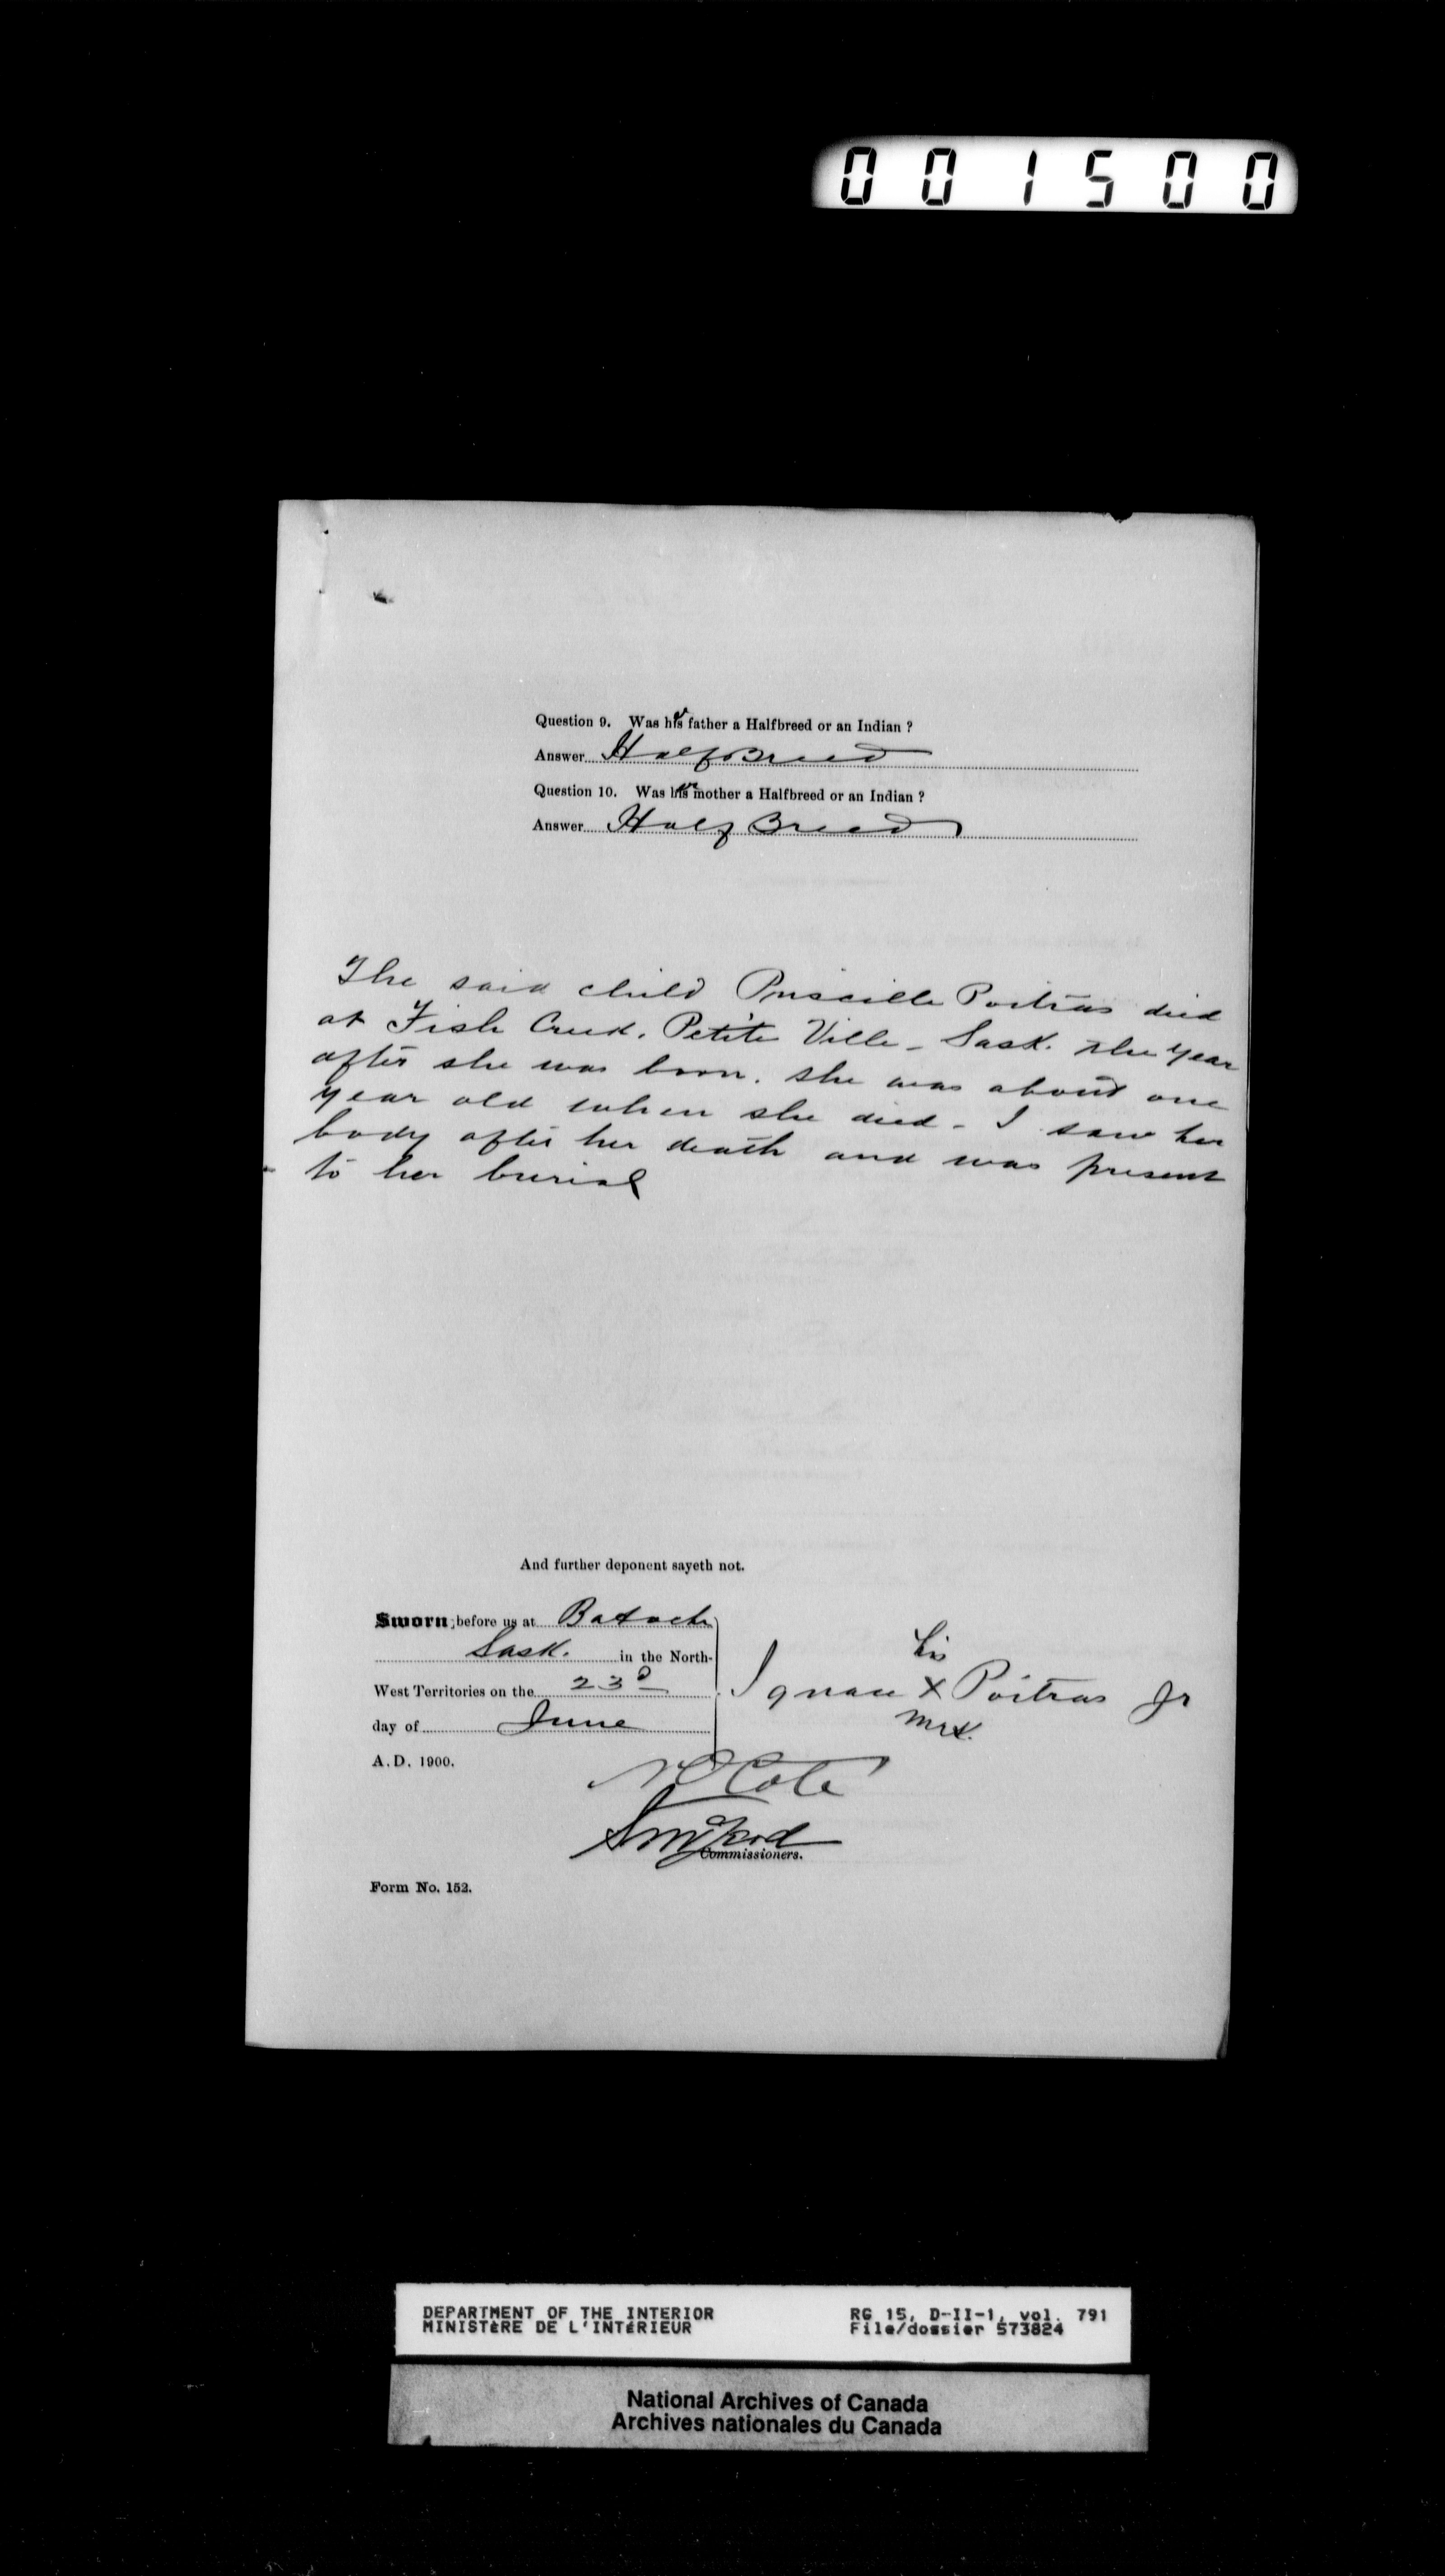 001500
Question 9. Was her father a Halfbreed or an Indian ?
Answer Half Breed
Question 10. Was her mother a Halfbreed or an Indian ?
Answer Half Breed
The said child Priscille Poitras died
at Fish Creek. Petite Ville - Sask. the year
after she was born. she was about one
year old when she died - I saw her
body after her death and was present
to her burial
And further deponent sayeth not.
Sworn before us at Batoche
Sask. in the North-
West Territories on the 23d
day of June
A.D. 1900.
his
Ignace X Poitras Jr
mrk.
N O Cote
Commissioners.
Form No. 152.
DEPARTMENT OF THE INTERIOR
MINISTÈRE DE L'INTÉRIEUR
RG 15, D-II-1, vol. 791
File/dossier 573824
National Archives of Canada
Archives nationales du Canada